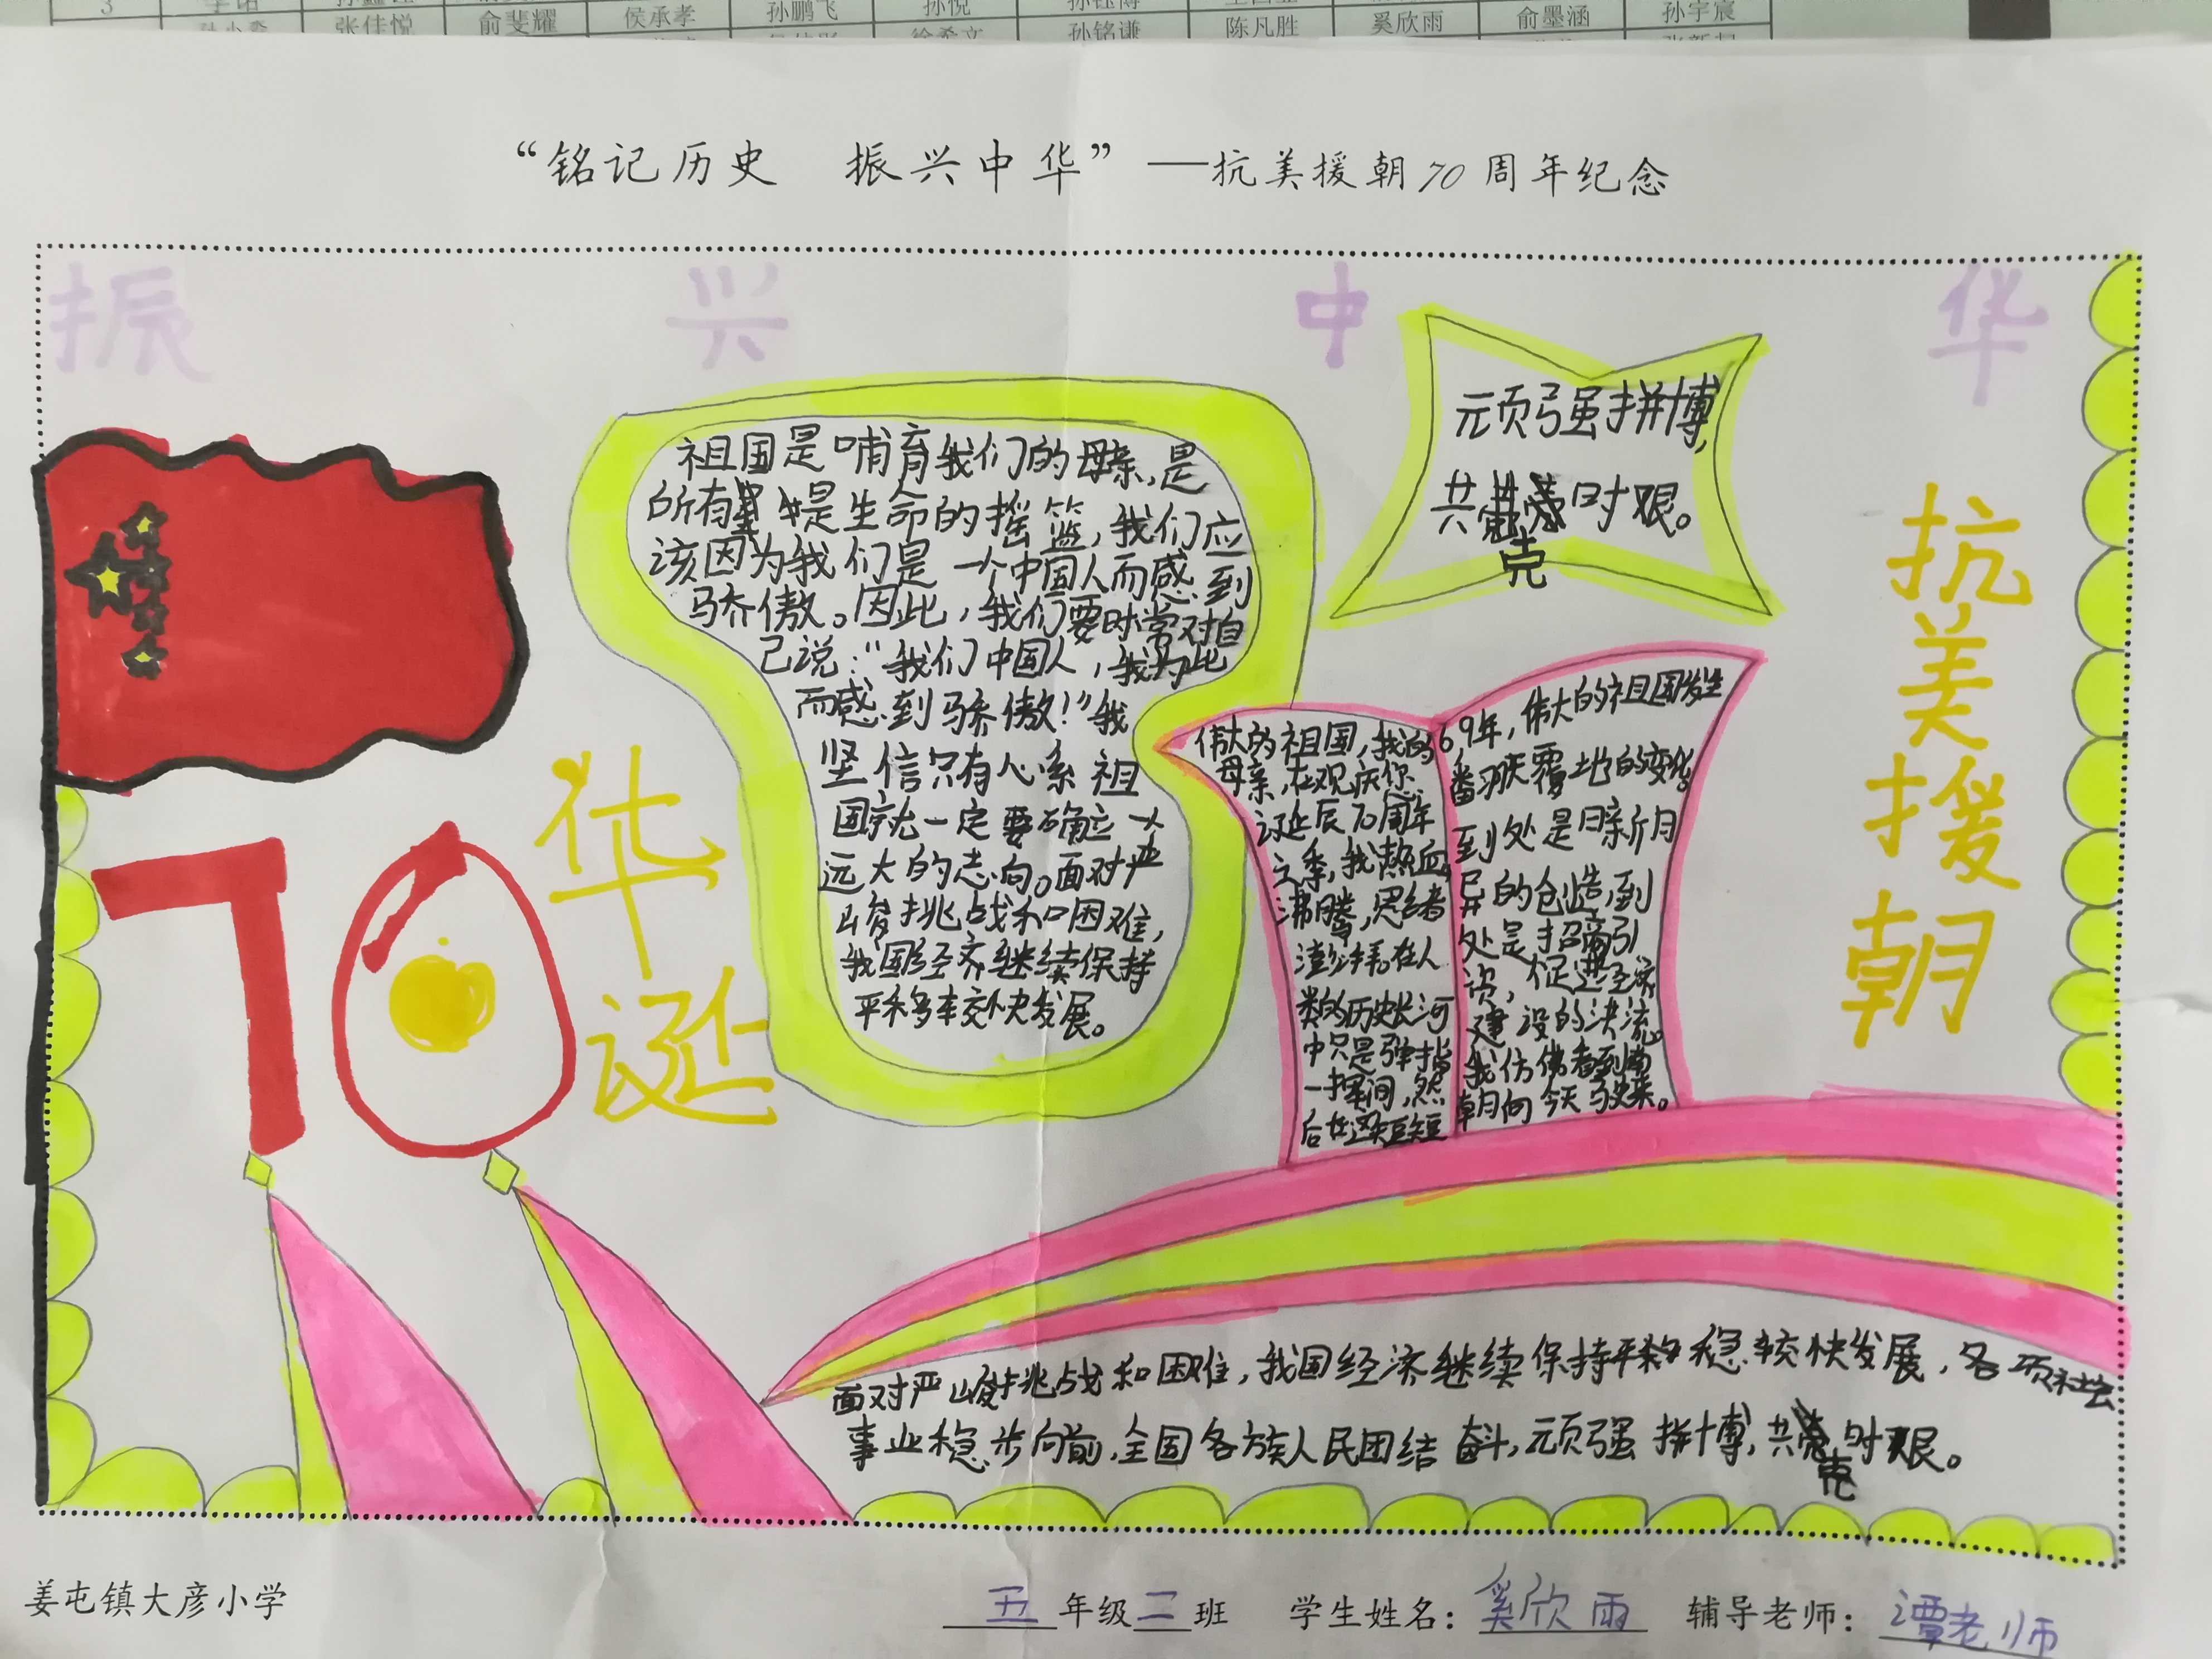 3
张佳悦 俞斐耀 侯承孝 孙鹏飞 孙悦 孙铭谦 陈凡胜 奚欣雨 俞墨涵 孙宇宸
“铭记历史 振兴中华”——抗美援朝70周年纪念
振兴中华
70
华诞
祖国是哺育我们的母亲,是
所有 是生命的摇篮,我们应
该因为我们是一个中国人而感到
骄傲。因此,我们要时常对自
己说:“我们中国人,我为此
而感到骄傲!”我
坚信只有心系祖
国就一定要确立一个
远大的志向。面对严
峻挑战和困难,
我国经济继续保持
平 较快发展。
顽强拼博,
共克时艰。
伟大的祖国,我的
母亲,在观庆您
诞辰70周年
之季,我热血
沸腾,思绪
澎湃。在人
类的历史长河
中只是弹指
一挥间,然
后在这短短
69年,伟大的祖国发生
翻天覆地的变化。
到处是日新月
异的创造,到
处是招商引
资,促进经济
建设的决流。
我仿佛看到
朝向今天
抗美援朝
面对严峻挑战和困难,我国经济继续保持平 稳较快发展,各项社会
事业稳步向前,全国各族人民团结奋斗,顽强拼博,共克时艰。
姜屯镇大彦小学 五年级二班 学生姓名:奚欣雨 辅导老师:谭老师